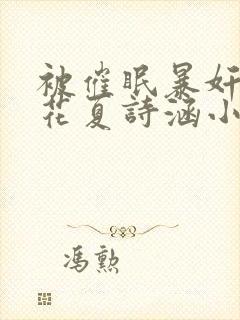 被催眠暴奸
花夏詩涵小
馮勲